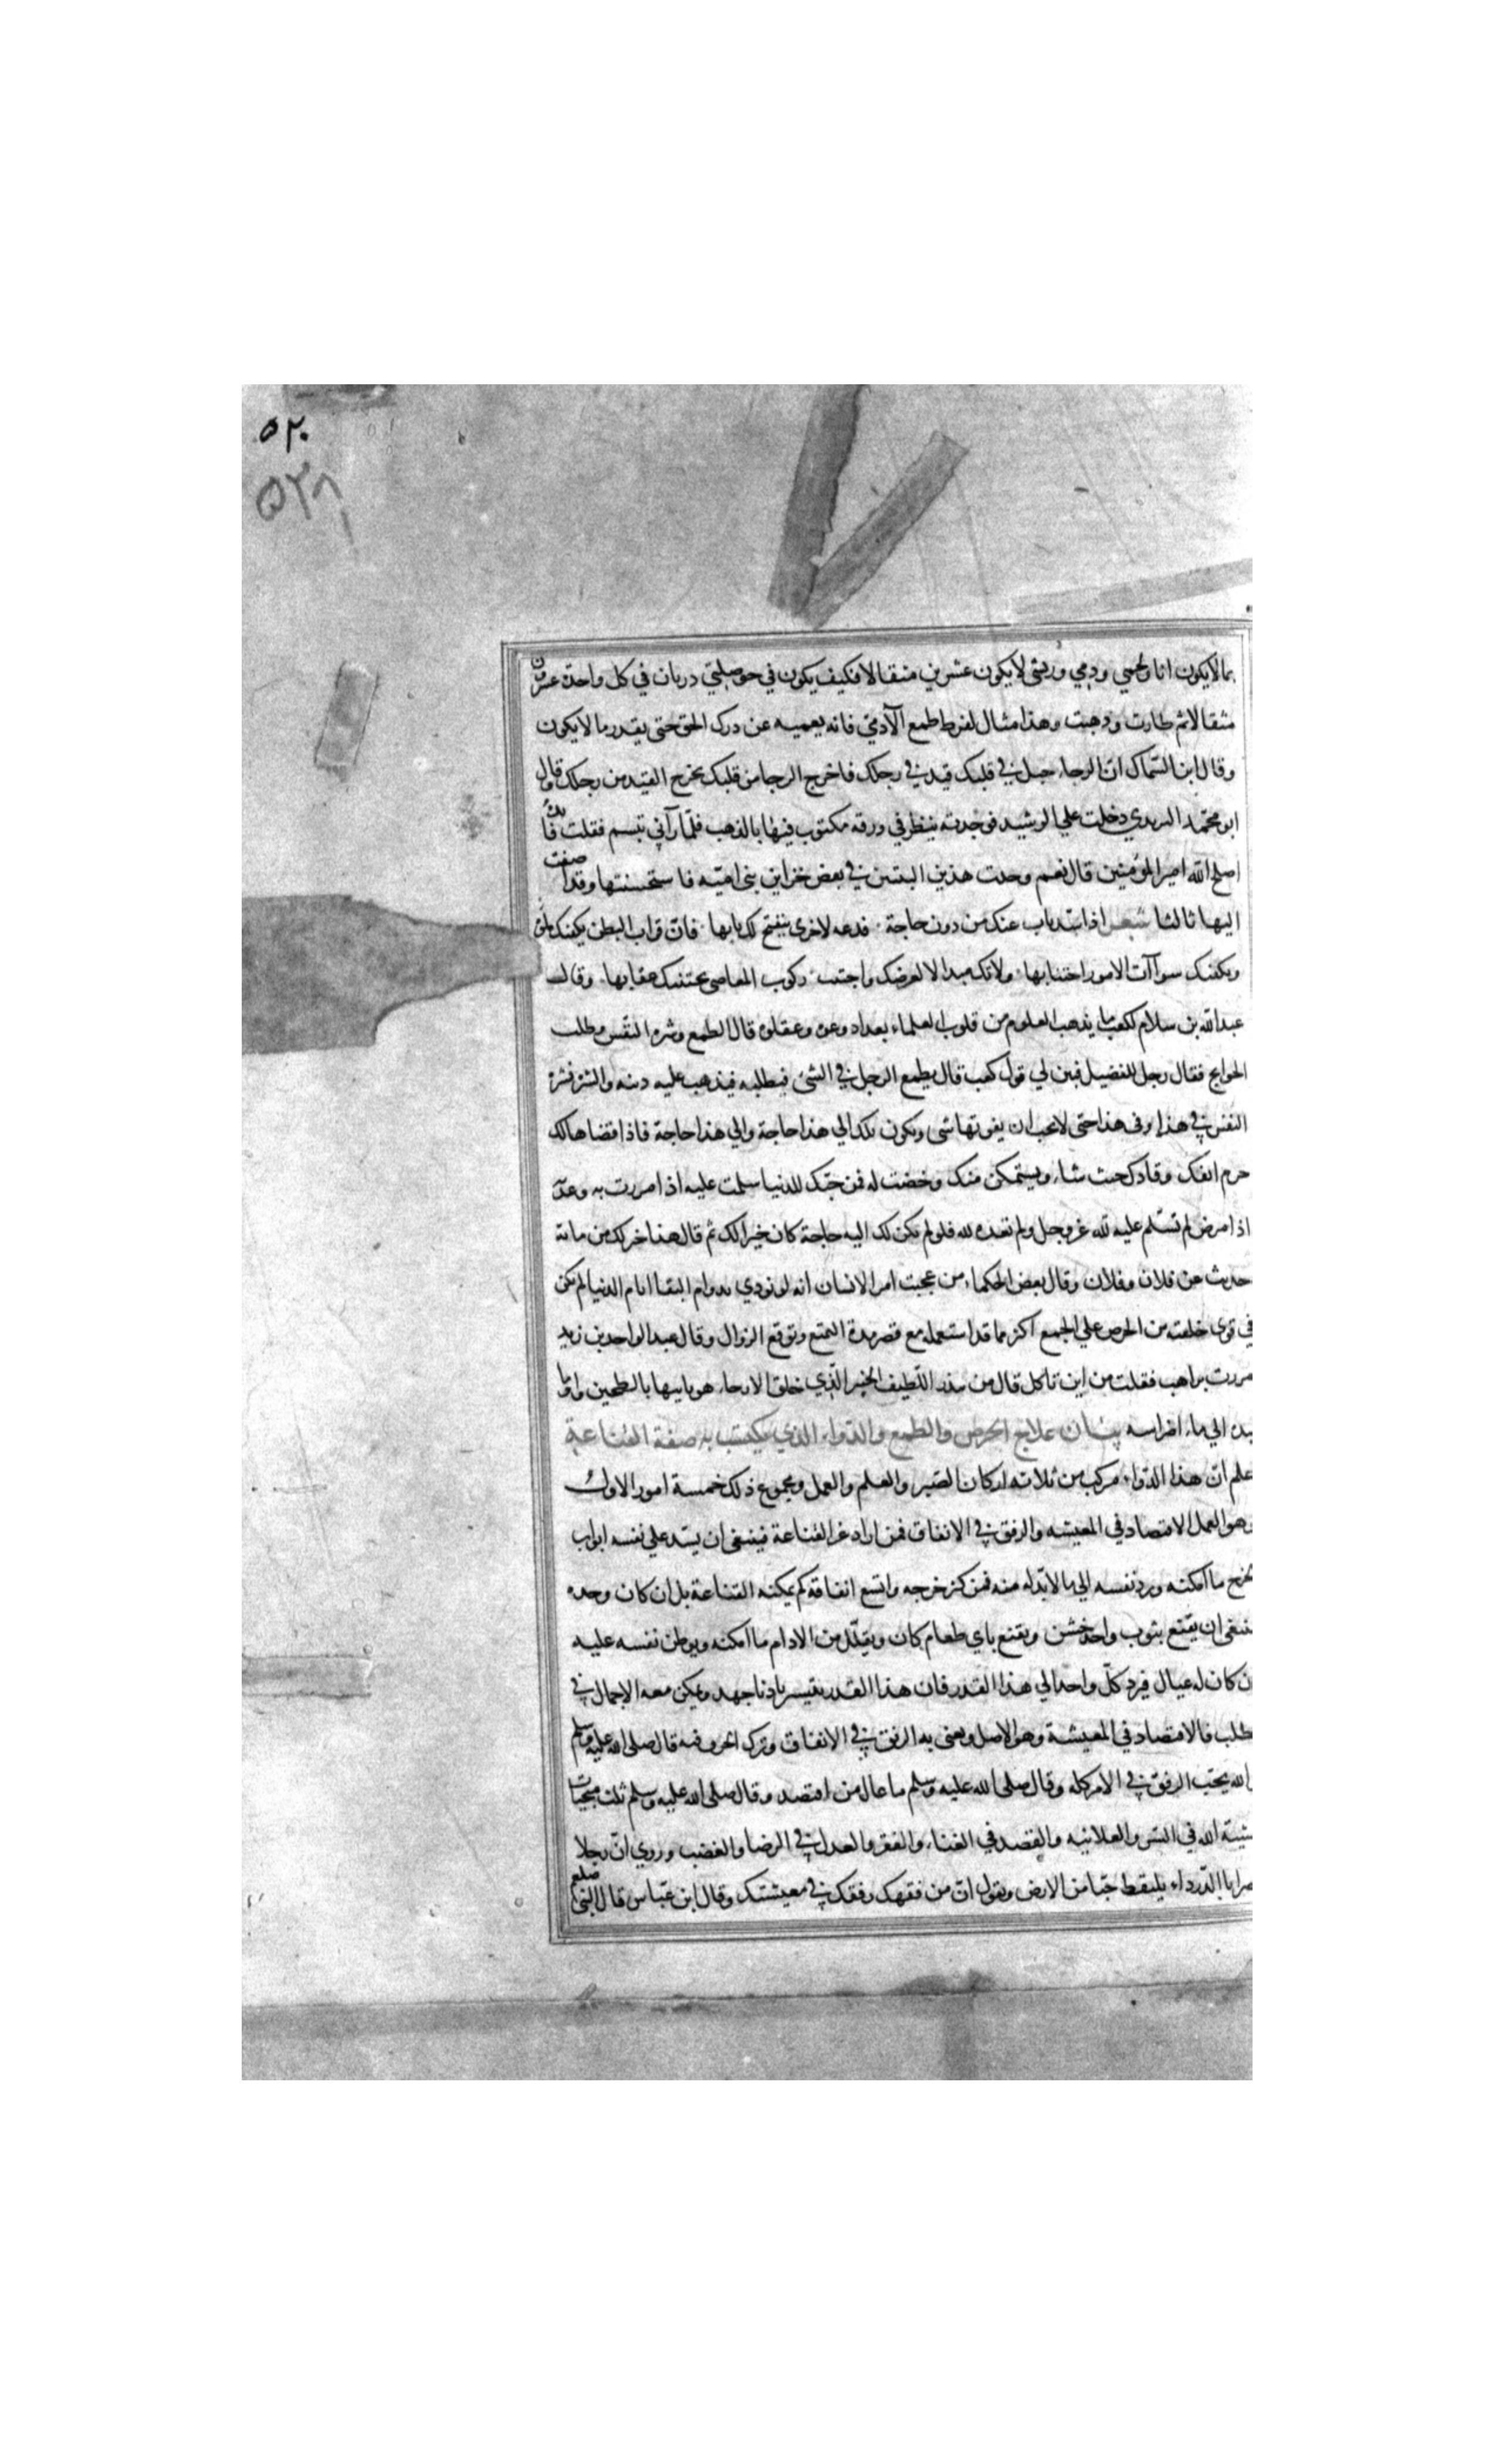 ٥٢٠
٥٢٨
بما لايكون انا ولحمي ودمي وريشي لا يكون عشرين مثقالا فكيف يكون في حوصلتي درتان في كل واحدة عشرون
مثقالا ثم طارت وذهبت وهذا مثال لفرط طمع الآدمي فانه يعميه عن درك الحق حتى يقدر ما لا يكون
وقال ابن السّماك انّ الرجاء حبل في قلبك قيد في رجلك فاخرج الرجا من قلبك يخرج القيد من رجلك وقال
ابو محمّد اليزيدي دخلت علي الرشيد فوجدته ينظر في ورقه مكتوب فيها بالذهب فلمّا رآني تبسم فقلت فائدة
اصلح الله امير المؤمنين قال نعم وجدت هذين البيتين في بعض خزاين بني اميّه فاستحسنتها وقد اضفت
اليها ثالثا شعر اذا سد باب عنك من دون حاجة فدعه لاخري ينفتح لك بابها فان قراب البطن يكفيك ملؤه
ويكفيك سوآت الامور اجتنابها ولا تك مبذالا لعرضك واجتنب ركوب المعاصي يجتنبك عقابها وقال
عبد الله بن سلام لكعب ما يذهب العلوم من قلوب العلماء بعد اذ وعوه وعقلوه قال الطمع وشره النفس وطلب
الحوايج فقال رجل للفضيل فسر لي قول كعب قال يطمع الرجل في الشئ فيطلبه فيذهب عليه دينه والشره فشره
النفس في هذا وفي هذا حتى لا تحب ان يفوتها شي ويكون لك الي هذا حاجة والي هذا حاجة فاذا قضاها لك
خرم انفك وقادك حيث شاء ويستمكن منك وخضعت له فمن حبّك للدنيا سلمت عليه اذا مررت به وعدته
اذا مرض لم تسلم عليه لله عز وجل ولم تعده لله فلو لم يكن لك اليه حاجة كان خيرا لك ثم قال هذا خير لك من مائة
حديث عن فلان وفلان وقال بعض الحكماء من عجيب امر الانسان انه لو نودي بدوام البقا ايام الدنيا لم يكن
في قوى خلقته من الحرص علي الجمع اكثر مما قد استعمله مع قصر مدة التمتع وتوقع الزوال وقال عبد الواحد بن زيد
مررت براهب فقلت من اين تاكل قال من بيدر اللّطيف الخبير الّذي خلق الارحاء هو ياتيها بالطحين واوما
بيده الي رحاء اضراسه بيان علاج الحرص والطمع والدواء الذي يكتسب به صفة القناعة
علم انّ هذا الدّواء مركب من ثلاثه اركان الصّبر والعلم والعمل ومجموع ذلك خمسة امور الاول
وهو العمل الاقتصاد في المعيشه والرفق في الانفاق فمن اراد عز القناعة فينبغي ان يسد علي نفسه ابواب
الخرج ما امكنه ورد نفسه الي ما لا بدّ له منه فمن كثر خرجه واتسع انفاقه لم يمكنه القناعة بل ان كان وحده
ينبغي ان يقنع بثوب واحد خشن ويقنع باي طعام كان ويقلّل من الادام ما امكنه ويوطن نفسه عليه
ن كان له عيال فيرد كلّ واحد الي هذا القدر فان هذا القدر يتيسر بادنا جهد ويمكن معه الاجمال في
طلب فالاقتصاد في المعيشة وهو الاصل ويعني به الرفق في الانفاق وترك الخرق فيه قال صلى الله عليه وسلم
الله يحب الرفق في الامر كله وقال صلى الله عليه وسلم ما عال من اقتصد وقال صلى الله عليه وسلم ثلث منجيات
شية الله في السّر والعلانيه والقصد في الغناء والفقر والعدل في الرضا والغضب وروي انّ رجلا
صر ابا الدّرداء يلتقط حبّا من الارض ويقول انّ من فقهك رفقك في معيشتك وقال ابن عبّاس قال النبي صلعم